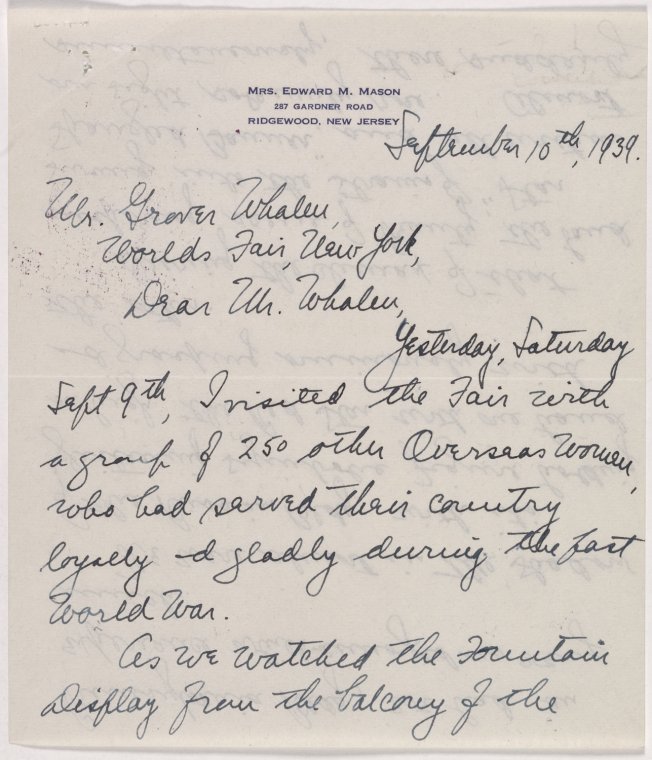 MRS. EDWARD M. MASON
287 GARDNER ROAD
RIDGEWOOD, NEW JERSEY
September 10th, 1939.
Mr. Grover Whalen,
Worlds Fair, New York,
Dear Mr. Whalen,
Yesterday, Saturday
Sept 9th, I visited the Fair with
a group of 250 other Overseas Women,
who had served their country
loyally -d gladly during the past
World War.
As we watched the Fountain
Display from the balcony of the